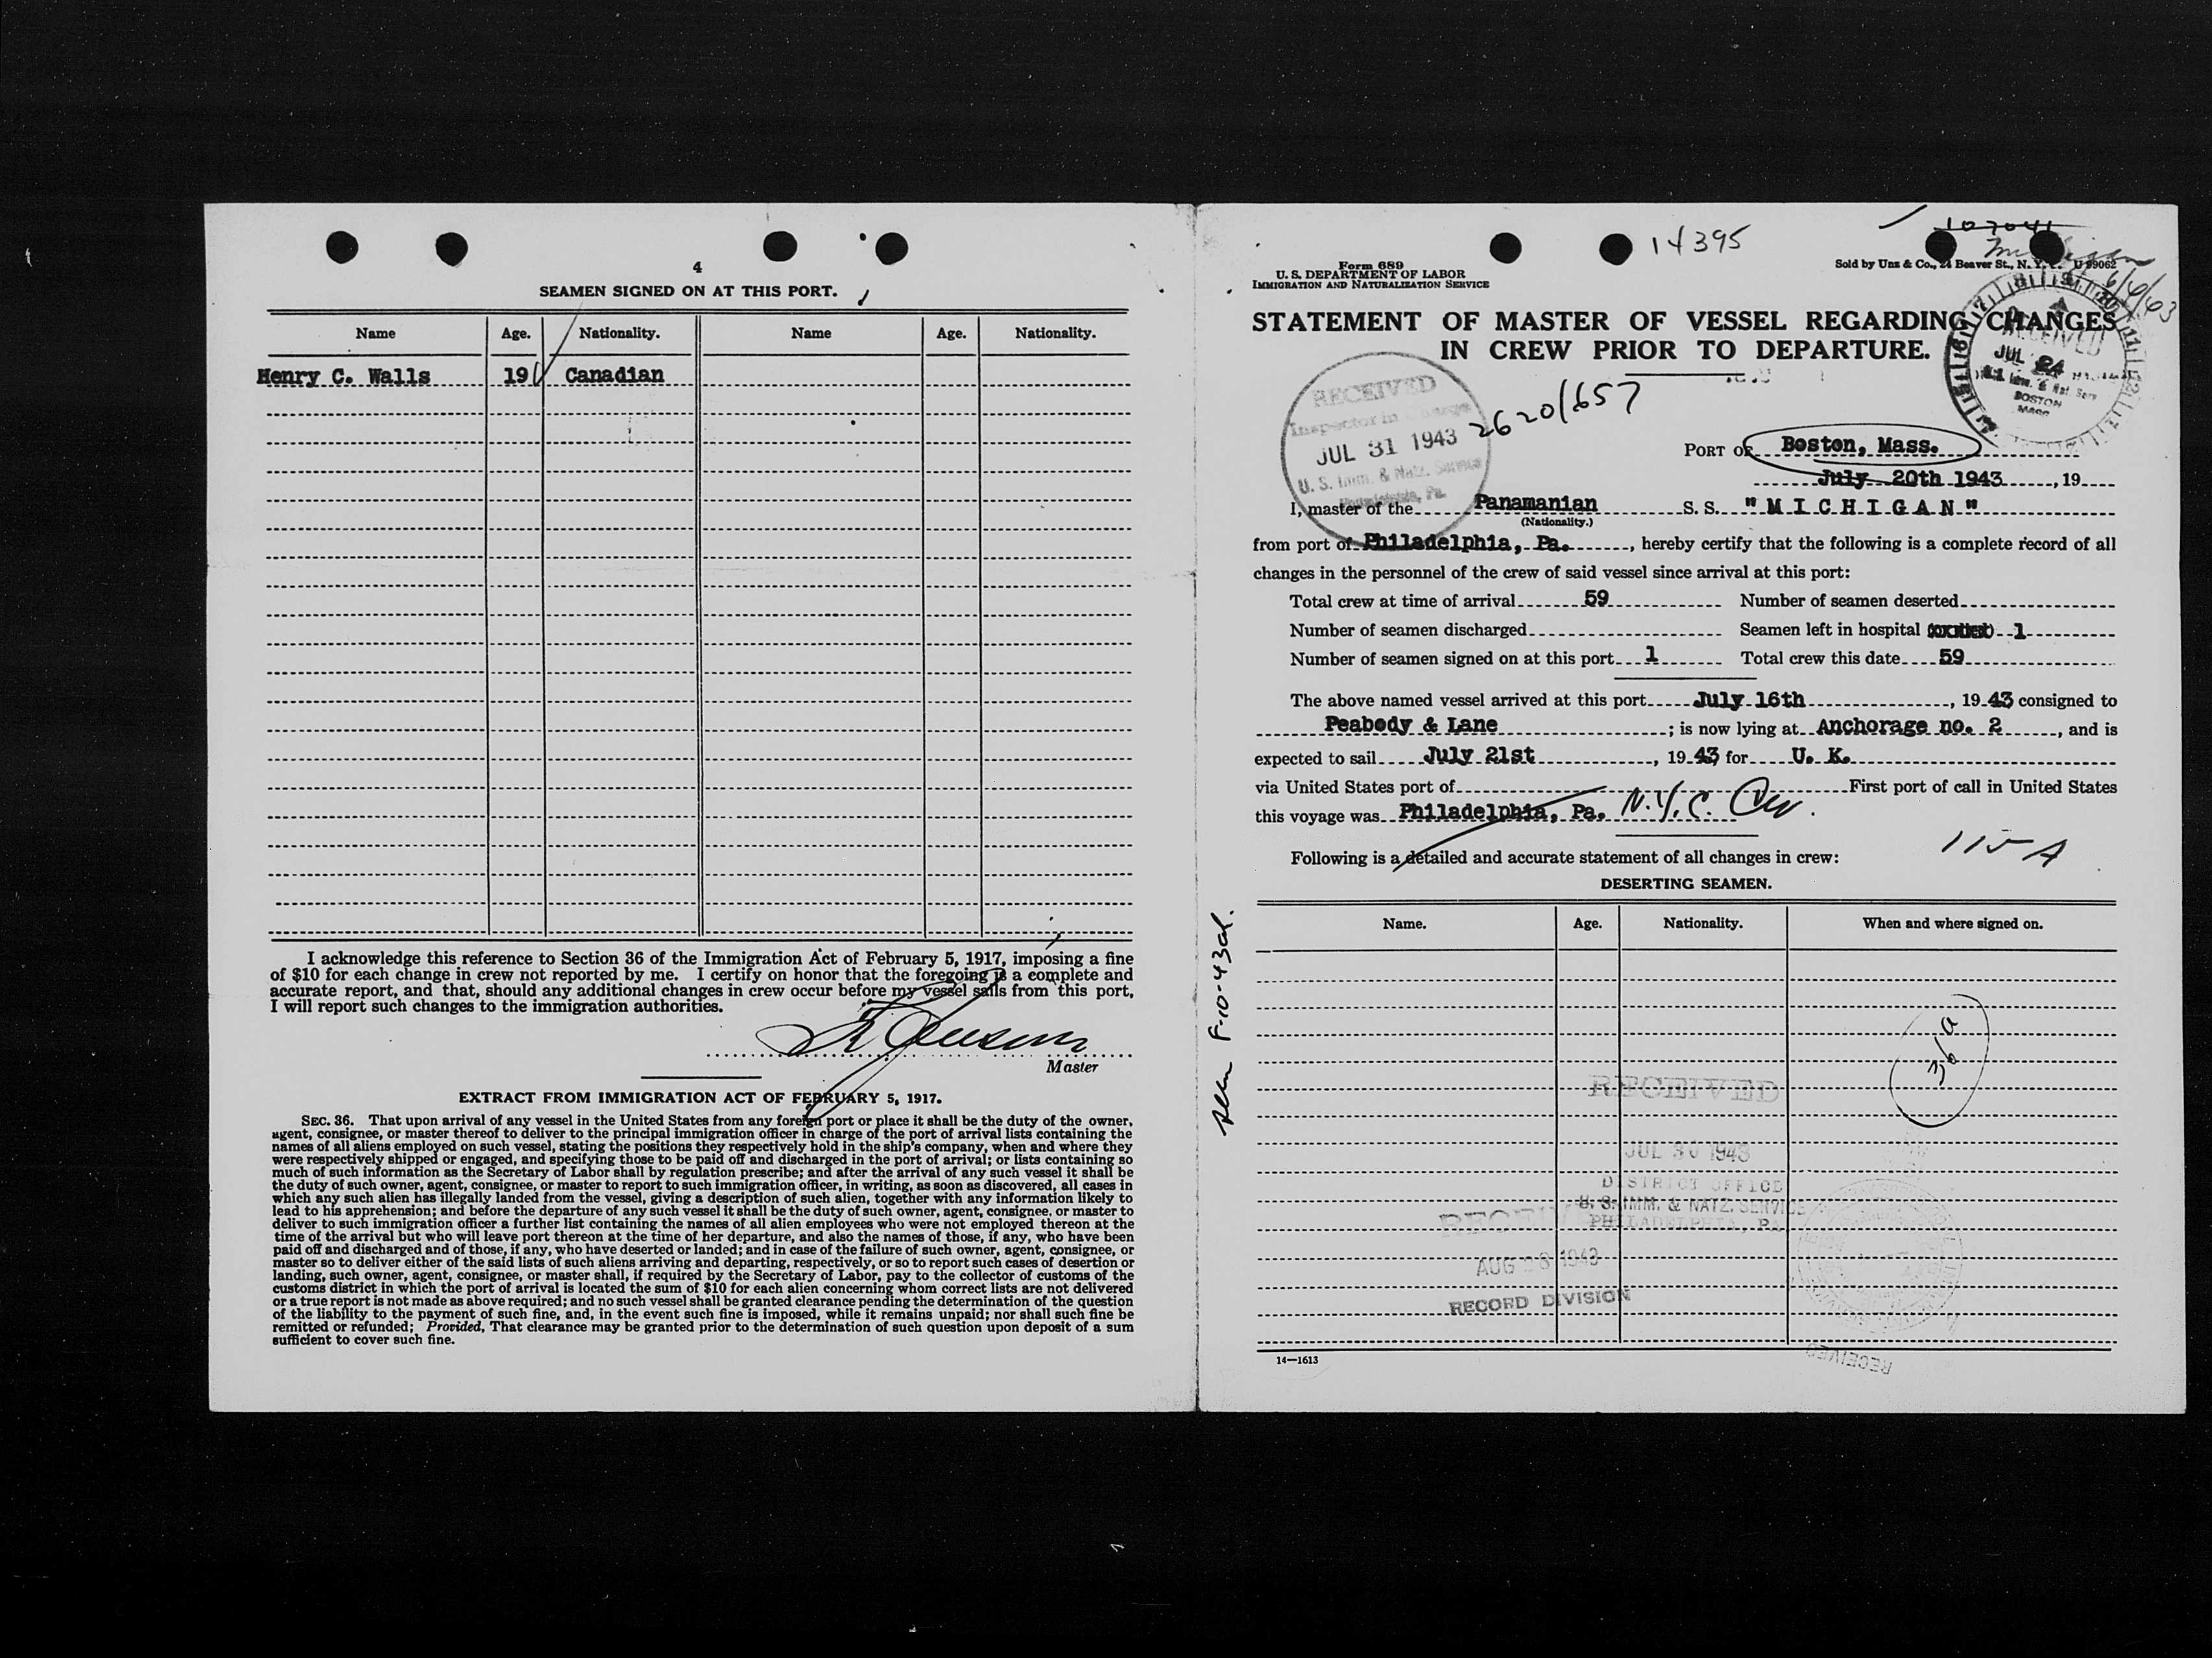 4
SEAMEN SIGNED ON AT THIS PORT.
Name Age. Nationality. Name Age. Nationality.
Henry C. Walls 19 Canadian
I acknowledge this reference to Section 36 of the Immigration Act of February 5, 1917, imposing a fine
of $10 for each change in crew not reported by me. I certify on honor that the foregoing is a complete and
accurate report, and that, should any additional changes in crew occur before my vessel sails from this port,
I will report such changes to the immigration authorities.
Master
EXTRACT FROM IMMIGRATION ACT OF FEBRUARY 5, 1917.
SEC. 36. That upon arrival of any vessel in the United States from any foreign port or place it shall be the duty of the owner,
agent, consignee, or master thereof to deliver to the principal immigration officer in charge of the port of arrival lists containing the
names of all aliens employed on such vessel, stating the positions they respectively hold in the ship's company, when and where they
were respectively shipped or engaged, and specifying those to be paid off and discharged in the port of arrival; or lists containing so
much of such information as the Secretary of Labor shall by regulation prescribe; and after the arrival of any such vessel it shall be
the duty of such owner, agent, consignee, or master to report to such immigration officer, in writing, as soon as discovered, all cases in
which any such alien has illegally landed from the vessel, giving a description of such alien, together with any information likely to
lead to his apprehension; and before the departure of any such vessel it shall be the duty of such owner, agent, consignee, or master to
deliver to such immigration officer a further list containing the names of all alien employees who were not employed thereon at the
time of the arrival but who will leave port thereon at the time of her departure, and also the names of those, if any, who have been
paid off and discharged and of those, if any, who have deserted or landed; and in case of the failure of such owner, agent, consignee, or
master so to deliver either of the said lists of such aliens arriving and departing, respectively, or so to report such cases of desertion or
landing, such owner, agent, consignee, or master shall, if required by the Secretary of Labor, pay to the collector of customs of the
customs district in which the port of arrival is located the sum of $10 for each alien concerning whom correct lists are not delivered
or a true report is not made as above required; and no such vessel shall be granted clearance pending the determination of the question
of the liability to the payment of such fine, and, in the event such fine is imposed, while it remains unpaid; nor shall such fine be
remitted or refunded; Provided, That clearance may be granted prior to the determination of such question upon deposit of a sum
sufficient to cover such fine.
14395
107041
Form 689
U. S. DEPARTMENT OF LABOR
IMMIGRATION AND NATURALIZATION SERVICE
Sold by Unz & Co., 24 Beaver St., N. Y. C. U 99062
STATEMENT OF MASTER OF VESSEL REGARDING CHANGES
IN CREW PRIOR TO DEPARTURE.
RECEIVED
JUL 24
BOSTON
MASS
RECEIVED
Inspector in Charge
JUL 31 1943
U. S. Imm. & Natz. Service
Philadelphia, Pa.
2620/657
PORT OF Boston, Mass.
July 20th 1943, 19
I, master of the Panamanian S. S. "MICHIGAN"
(Nationality.)
from port of Philadelphia, Pa., hereby certify that the following is a complete record of all
changes in the personnel of the crew of said vessel since arrival at this port:
Total crew at time of arrival 59 Number of seamen deserted
Number of seamen discharged Seamen left in hospital 1
Number of seamen signed on at this port 1 Total crew this date 59
The above named vessel arrived at this port July 16th, 1943 consigned to
Peabody & Lane; is now lying at Anchorage no. 2, and is
expected to sail July 21st, 1943 for U. K.
via United States port of First port of call in United States
this voyage was Philadelphia, Pa. N.Y.C.
115 A
Following is a detailed and accurate statement of all changes in crew:
DESERTING SEAMEN.
Name. Age. Nationality. When and where signed on.
36a
RECEIVED
JUL 30 1943
DISTRICT OFFICE
U. S. IMM. & NATZ. SERVICE
PHILADELPHIA, PA.
RECEIVED
AUG 1943
RECORD DIVISION
14—1613
RECEIVED